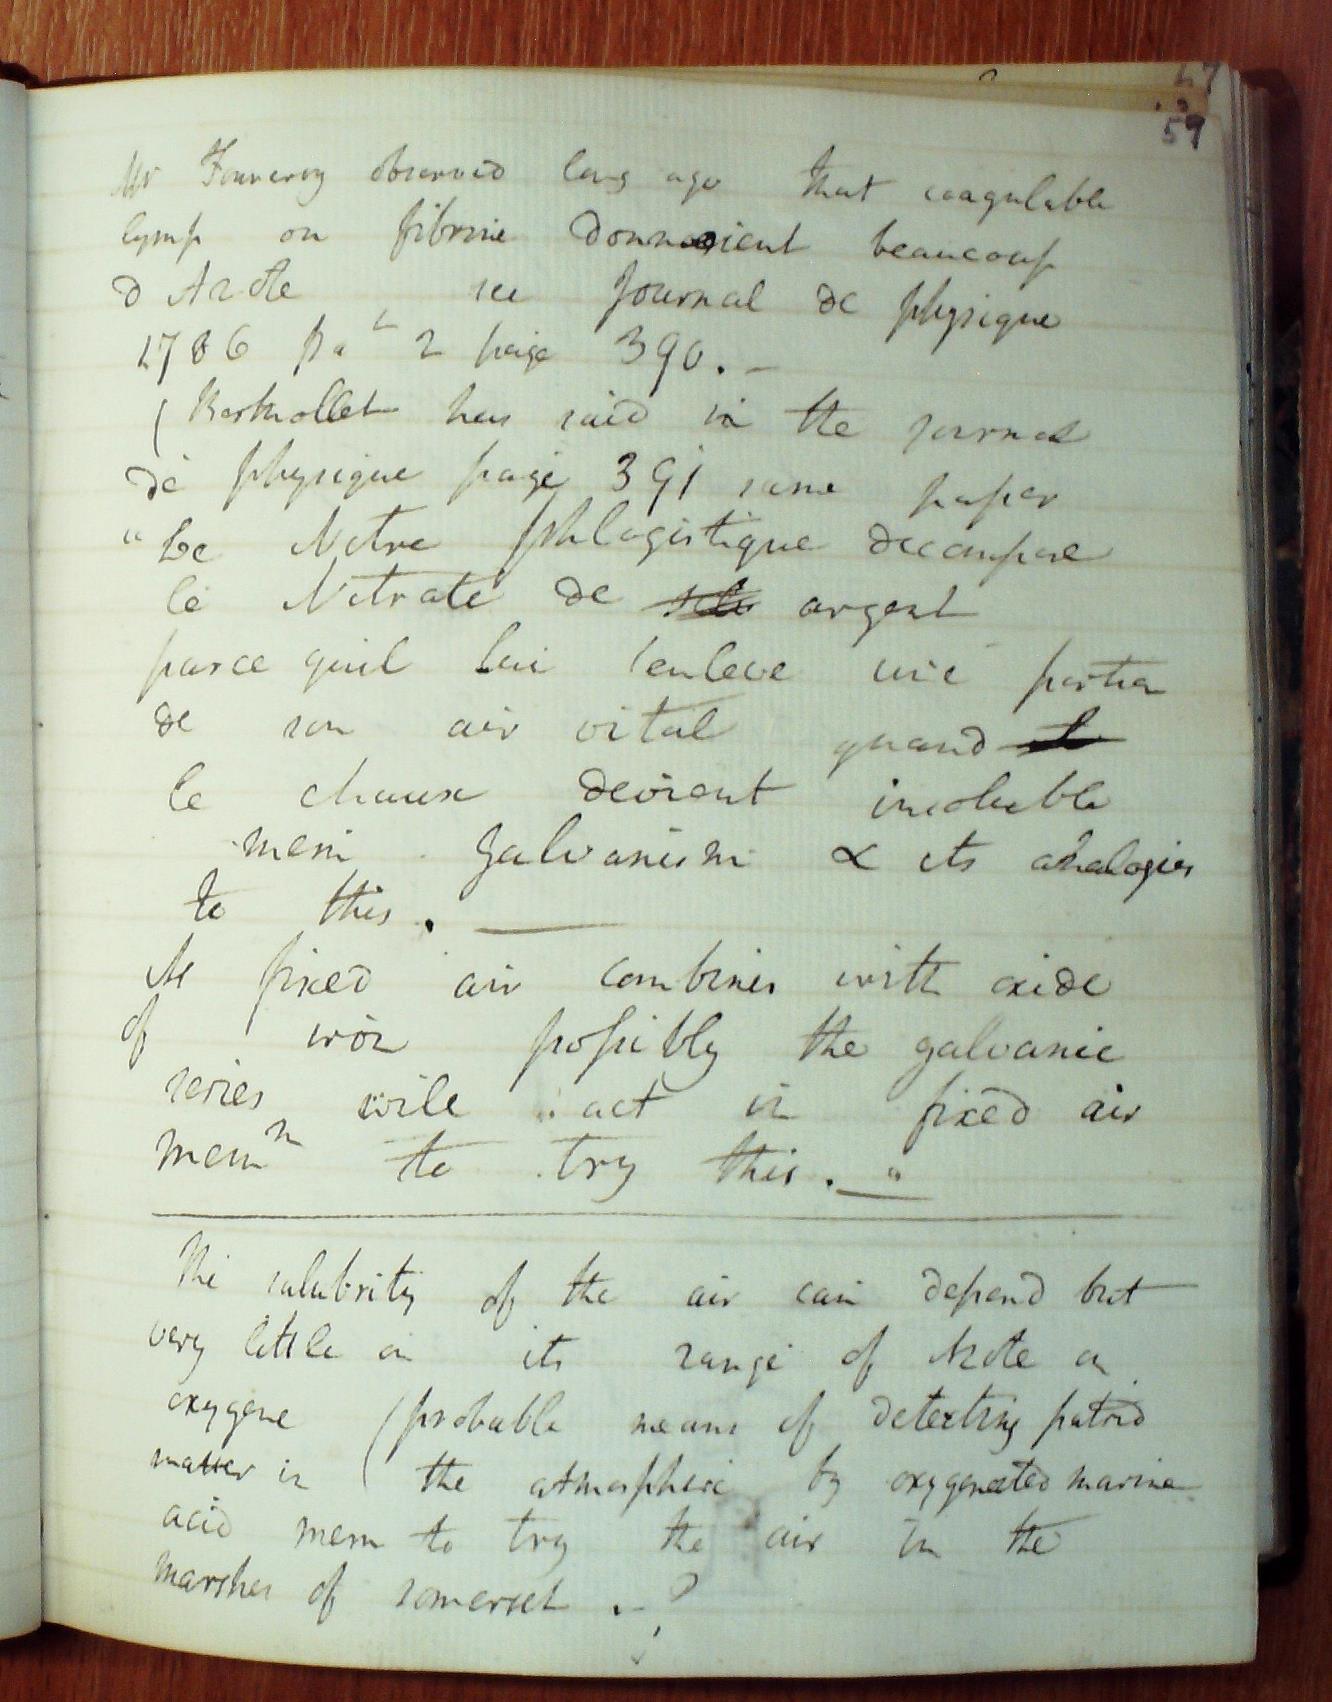 57
59
Mr Fourcroy observed long ago that coagulable
lymp ou fibrine donnoient beaucoup
d Azote see Journal de physique
1786 pat 2 page 390. –
( Berthollet has said in the journal
de physique page 391 same paper
" Le Nitre phlogistique decompose
le Nitrate de argent
parce quil lui enleve une portion
de son air vital quand
le chaux devient insoluble
mem galvanism & its analogies
to this. —
As fixed air combines with oxide
of iron possibly the galvanic
series will act in fixed air
memm to try this. — "
The salubrity of the air can depend but
very little on its range of Azote or
oxygene (probable means of detecting putrid
matter in ( the atmosphere by oxygenated marine
acid mem to try the air in the
marshes of somerset . – ?